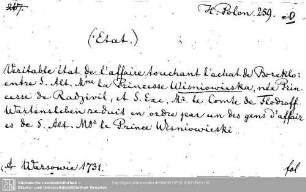 H. Polon. 259.
(Etat.)
Véritable Etat de l'affaire touchant l'achat de Borcklo:
entre S. Alt. Mme la Princesse Wisniowieska, née Prin
cesse de Radzivil, et S. Exc. Mr. le Comte de Flodroff
Wartensleben reduit en ordre par un des gens d'affair
es de S. Alt. Mgr. le Prince Wisniowieski
A Warsowie 1731.
fol